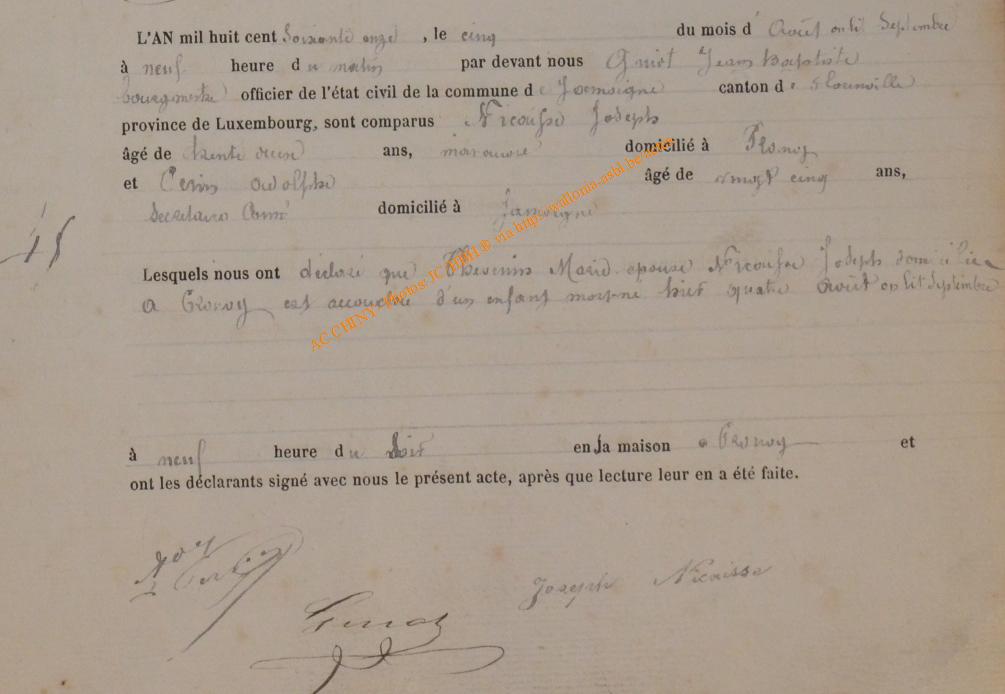 L'AN mil huit cent soixante onze , le cinq du mois d' août on lit Septembre
à neuf heure du matin par devant nous Guiot Jean Baptiste
bourgmestre officier de l'état civil de la commune de Jamoigne canton de Florenville
province de Luxembourg, sont comparus Nicaise Joseph
âgé de trente deux ans, manœuvre domicilié à Pronoy
et Perin Adolphe âgé de vingt cinq ans,
secrétaire Comm domicilié à Jamoigne
15
Lesquels nous ont déclaré que Thevenin Marie épouse Nicaise Joseph domiciliée
a Pronoy est accouchée d'un enfant mort-né hier quatre août on lit Septembre
à neuf heure du soir en la maison a Pronoy et
ont les déclarants signé avec nous le présent acte, après que lecture leur en a été faite.
Joseph Nicaisse
AC.CHINY - Photos: JC HIBI ® via http://wallonia-asbl.be/